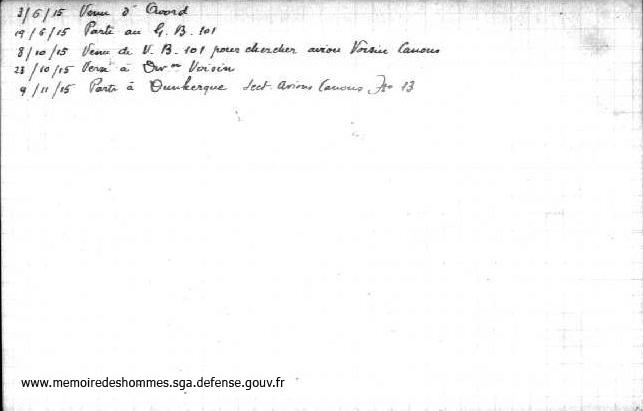 3/6/15 Venu d'Avord
19/6/15 Parti au G.B. 101
8/10/15 Venu de V.B. 101 pour chercher avion Voisin Canons
23/10/15 Versé à Don Voisin
9/11/15 Parti à Dunkerque Sect. Avions Canons, 13
www.memoiredeshommes.sga.defense.gouv.fr